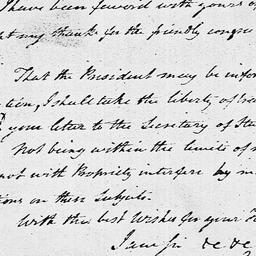 I have been favord with yours of
my thanks for the friendly congra
That the President may be infor
tion, I shall take the liberty of
your letter to the Secretary of Sta
Not being within the limits of m
not with Propriety interfere by m
tions on these Subjects.
With the best Wishes for your
I am Sir &c &c